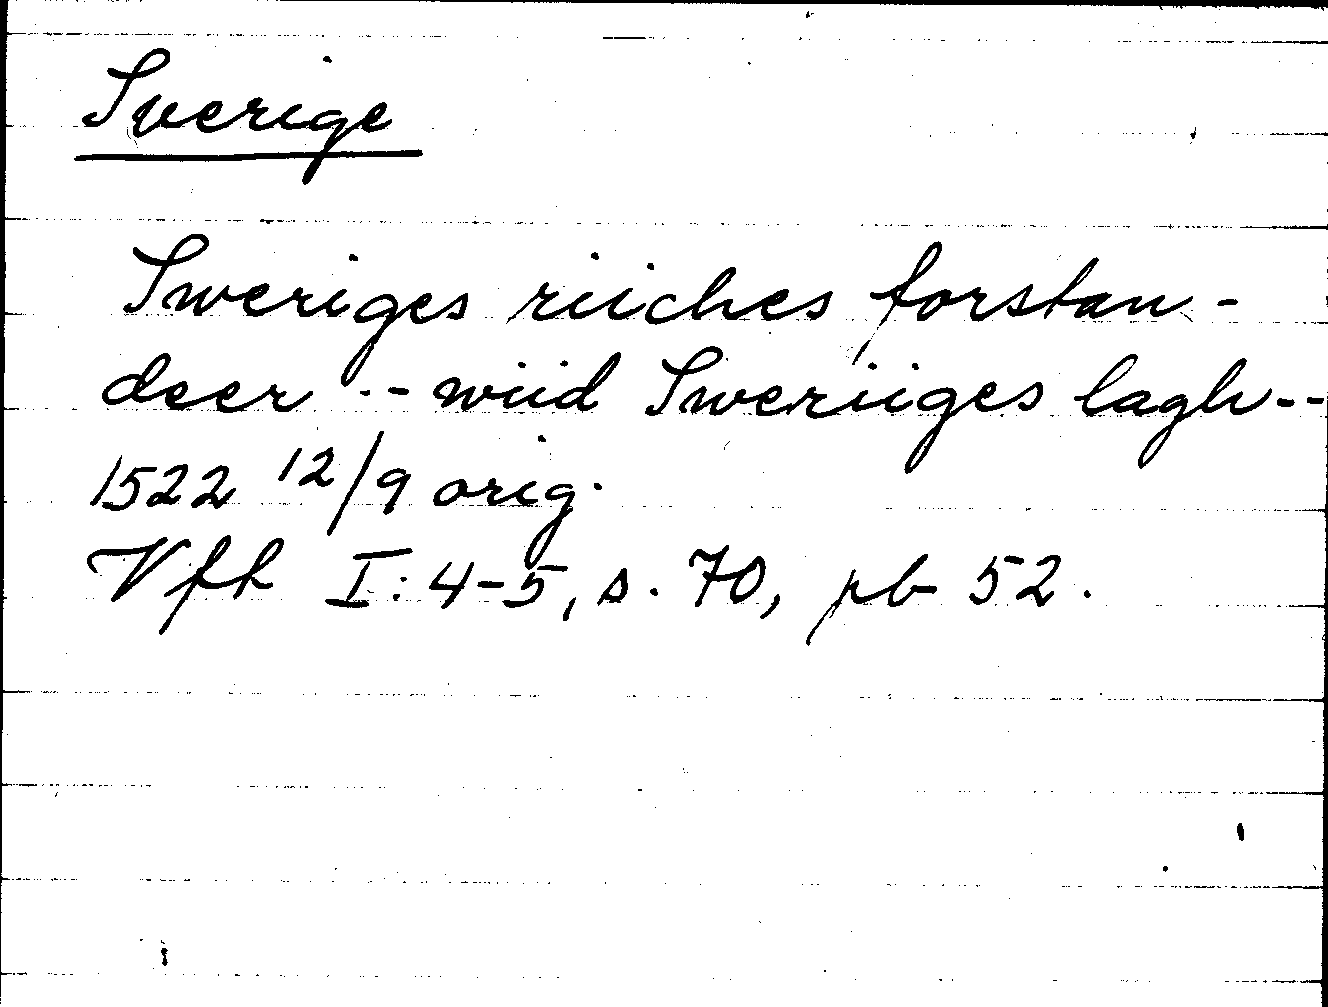 Sverige
Sweriges riiches forstan-
deer -- wiid Sweriiges lagh--
1522 12/9 orig.
Vfh I:4-5, s. 70, pb 52.